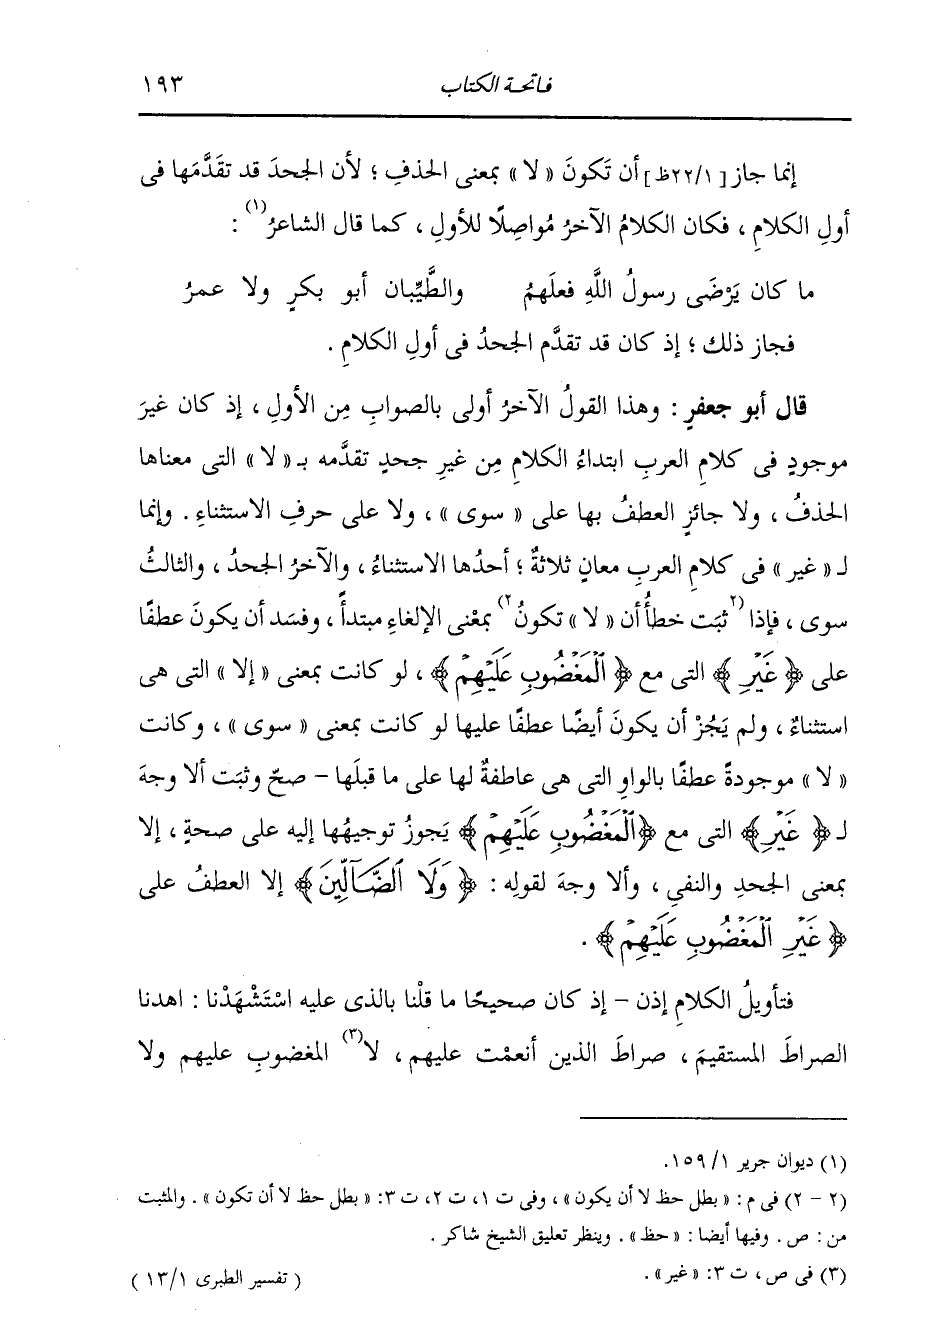 فاتحة الكتاب ١٩٣
إنما جاز [٢٢/١ظ] أن تَكونَ « لا » بمعنى الحذفِ ؛ لأن الجحدَ قد تقَدَّمَها فى
أولِ الكلامِ ، فكان الكلامُ الآخرُ مُواصِلًا للأولِ ، كما قال الشاعرُ(١) :
ما كان يَرْضَى رسولُ اللَّهِ فعلَهمُ والطَّيِّبان أبو بكرٍ ولا عمرُ
فجاز ذلك ؛ إذ كان قد تقدَّم الجحدُ فى أولِ الكلامِ .
قال أبو جعفرٍ : وهذا القولُ الآخرُ أولى بالصوابِ مِن الأولِ ، إذ كان غيرَ
موجودٍ فى كلامِ العربِ ابتداءُ الكلامِ مِن غيرِ جحدٍ تقدَّمه بـ « لا » التى معناها
الحذفُ ، ولا جائزٍ العطفُ بها على « سوى » ، ولا على حرفِ الاستثناءِ . وإنما
لـ « غير » فى كلامِ العربِ معانٍ ثلاثةٌ ؛ أحدُها الاستثناءُ ، والآخرُ الجحدُ ، والثالثُ
سوى ، فإذا (٢ثبَت خطأُ أن « لا » تكونُ٢) بمعْنى الإلغاءِ مبتدأً ، وفسَد أن يكونَ عطفًا
على ﴿ غَيْرِ ﴾ التى مع ﴿ الْمَغْضُوبِ عَلَيْهِمْ ﴾ ، لو كانت بمعنى « إلا » التى هى
استثناءٌ ، ولم يَجُزْ أن يكونَ أيضًا عطفًا عليها لو كانت بمعنى « سوى » ، وكانت
« لا » موجودةً عطفًا بالواوِ التى هى عاطفةٌ لها على ما قبلَها - صحّ وثبَت ألا وجهَ
لـ ﴿ غَيْرِ ﴾ التى مع ﴿ الْمَغْضُوبِ عَلَيْهِمْ ﴾ يَجوزُ توجيهُها إليه على صحةٍ ، إلا
بمعنى الجحدِ والنفىِ ، وألا وجهَ لقولِه : ﴿ وَلَا الضَّآلِّينَ ﴾ إلا العطفُ على
﴿ غَيْرِ الْمَغْضُوبِ عَلَيْهِمْ ﴾ .
فتأويلُ الكلامِ إذن - إذ كان صحيحًا ما قلْنا بالذى عليه اسْتَشْهَدْنا : اهدنا
الصراطَ المستقيمَ ، صراطَ الذين أنعمْت عليهم ، لا(٣) المغضوبِ عليهم ولا
(١) ديوان جرير ١/ ١٥٩.
(٢ - ٢) فى م : « بطل حظ لا أن يكون » ، وفى ت ١ ، ت ٢ ، ت ٣ : « بطل حظ لا أن تكون » . والمثبت
من : ص . وفيها أيضا : « حظ » . وينظر تعليق الشيخ شاكر .
(٣) فى ص ، ت ٣ : « غير » .
( تفسير الطبرى ١٣/١ )